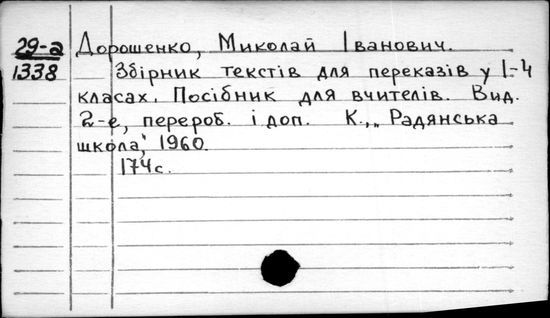 29-а Дорошенко, Миколай Іванович.
1338 Збірник текстів для переказів у 1-4
класах. Посібник для вчителів. Вид.
2-е, перероб. і доп. К., „Радянська
школа", 1960.
174с.